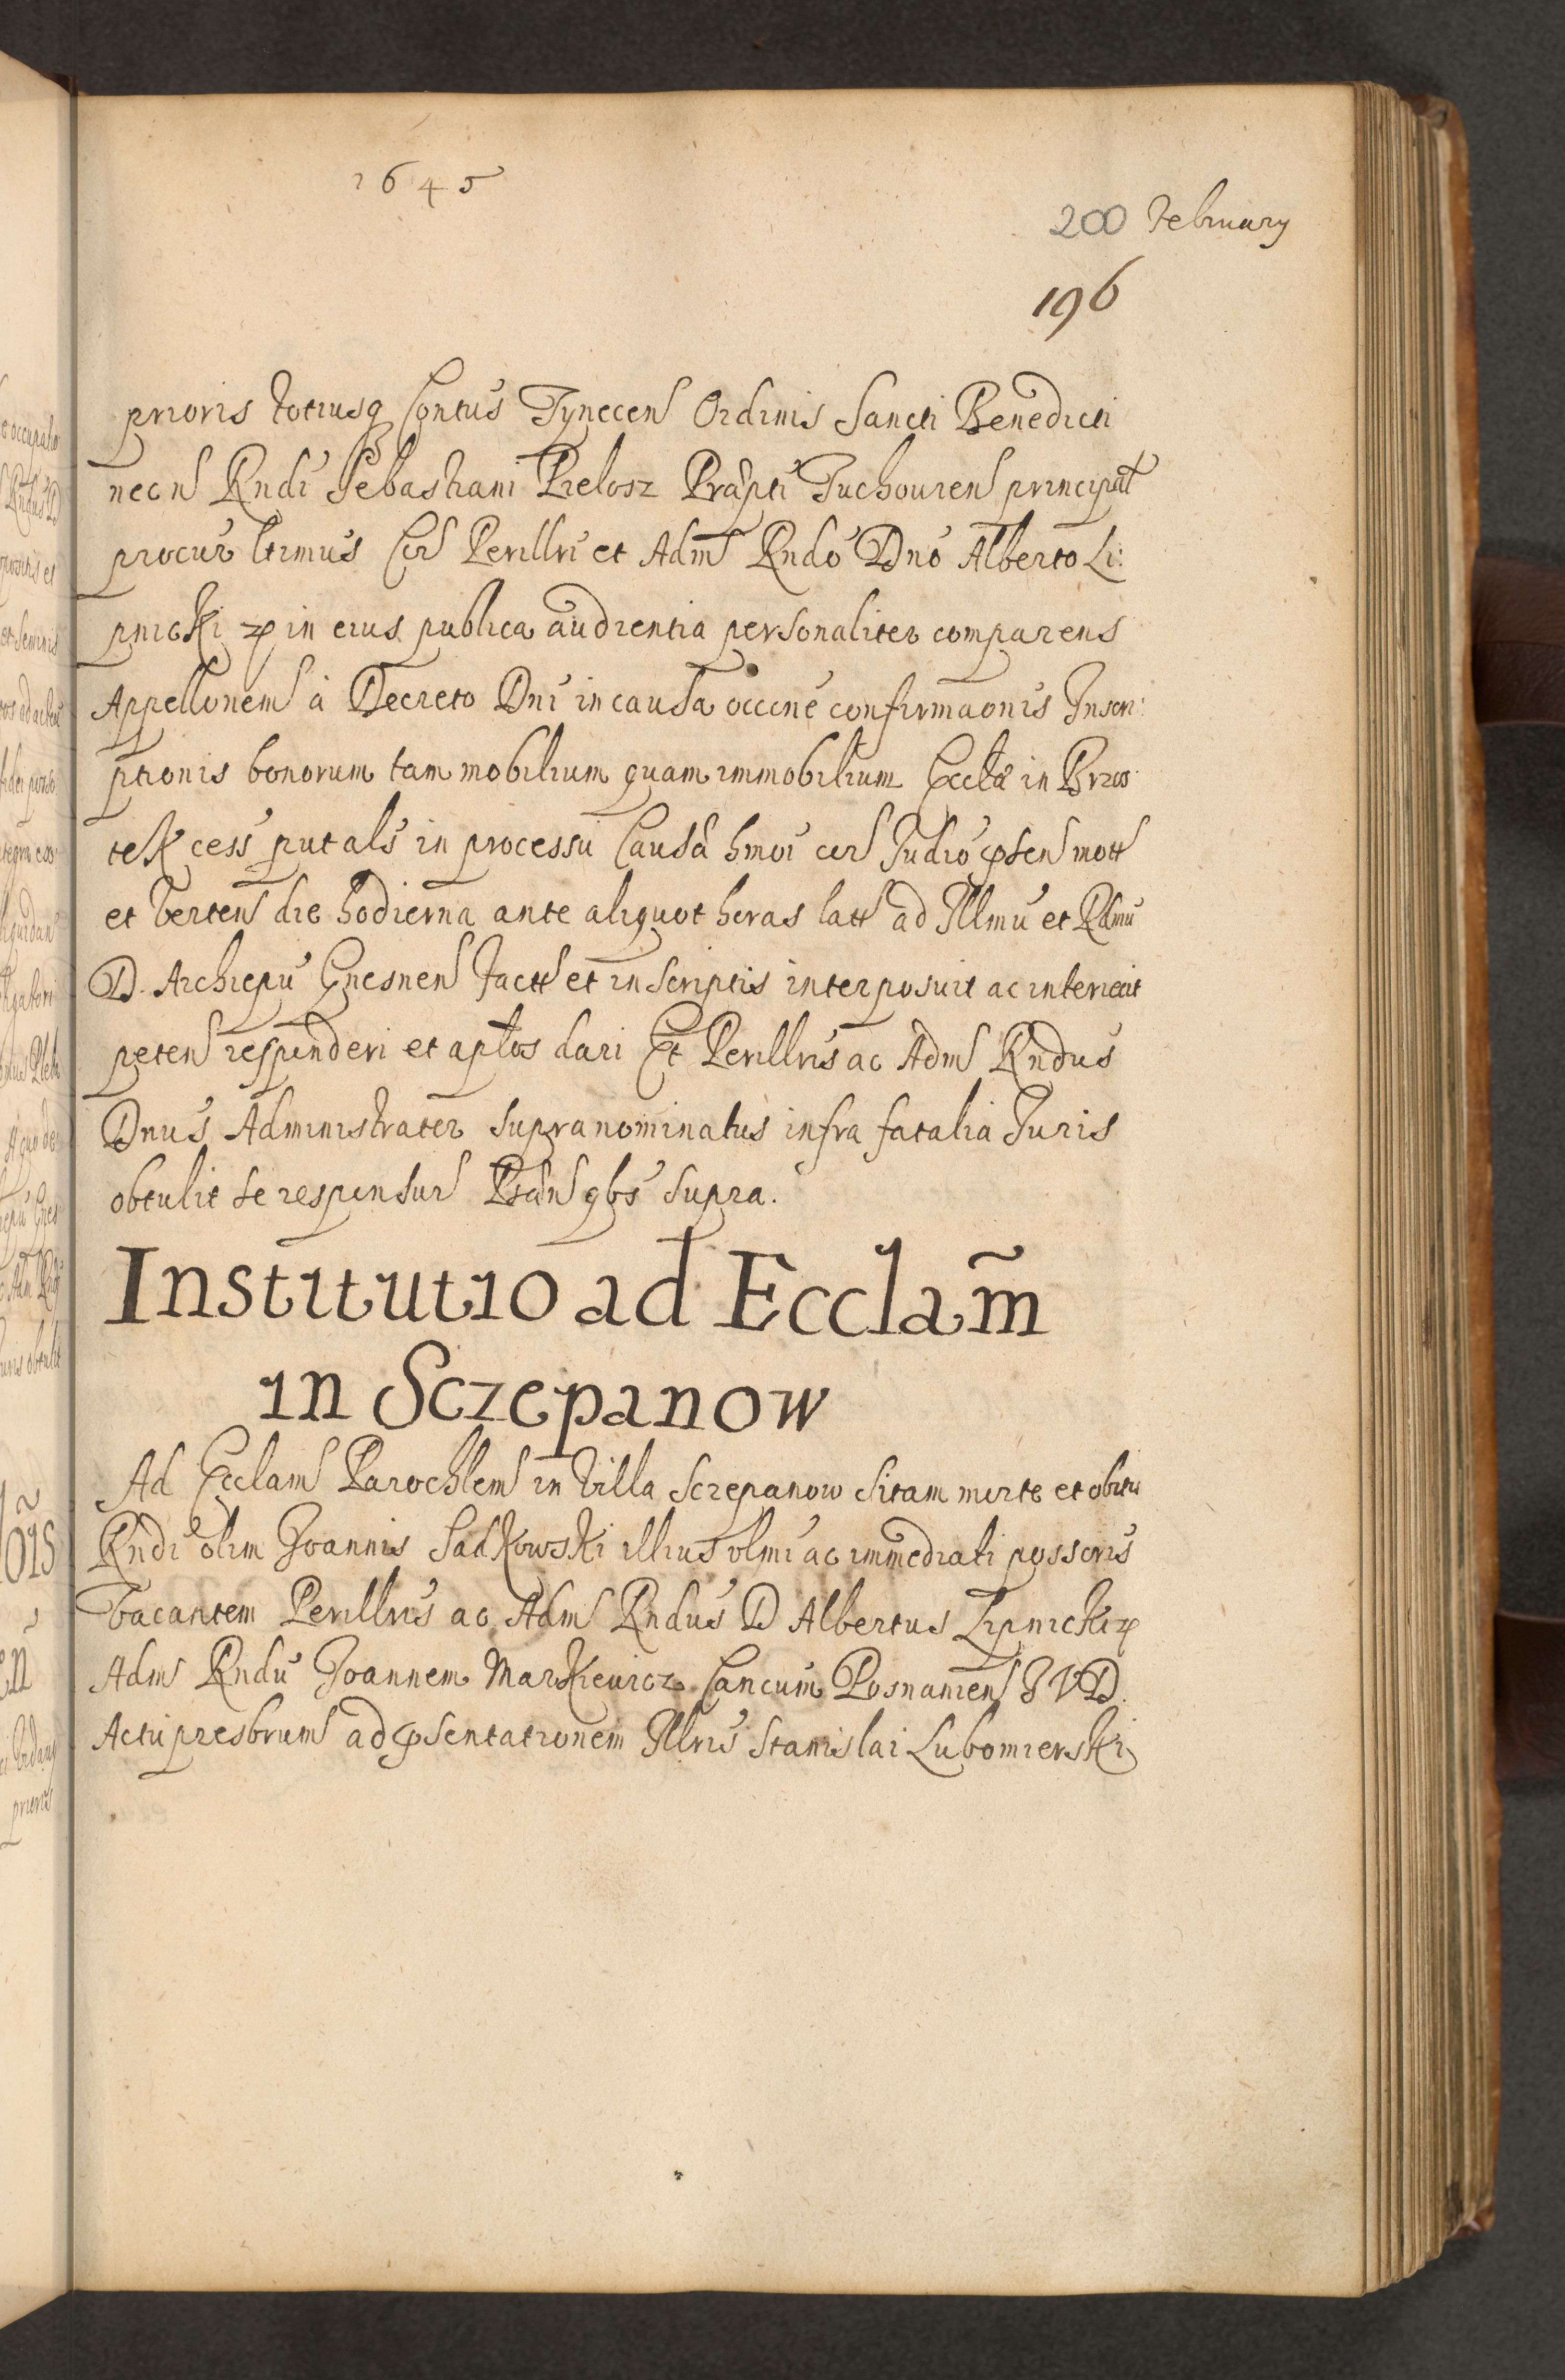 1645
200 February
196
prioris totiusq Contus Tynecen Ordinis Sancti Benedicti
necn Rndi Sebastiani Pielosz Præpti Tuchouien principal
procur ltimus Cor Perillri et Adm Rndo Dno Alberto Li:
pnicki in eius publica audientia personaliter comparens
Appellonem à Decreto Dni in causa occne confirmaonis Inscri:
ptionis bonorum tam mobilium quam immobilium Eccłæ in Brzos:
tek cess put als in processu Causæ hmoi cor Judio psen mott
et verten die hodierna ante aliquot horas latt ad Illmu et Rdmu
D. Archiepu Gnesnen factt et in scriptis interposuit ac interiecit
peten responderi et apłos dari Et Perillris ac Adm Rndus
Dnus Administrator supranominatus infra fatalia Juris
obtulit se responsur Pntn qbs supra.
Institutio ad Ecclam̃
in Sczepanow
Ad Ecclam Parochlem in Villa Sczepanow sitam morte et obitu
Rndi olim Joannis Sadkowski illius vlmi ac immediati possoris
vacantem Perillris ac Adm Rndus D Albertus Lipnicki
Adm Rndu Joannem Markiewicz Cancum Posnanien JVD.
Actu presbrum ad psentationem Illris Stanislai Lubomierski